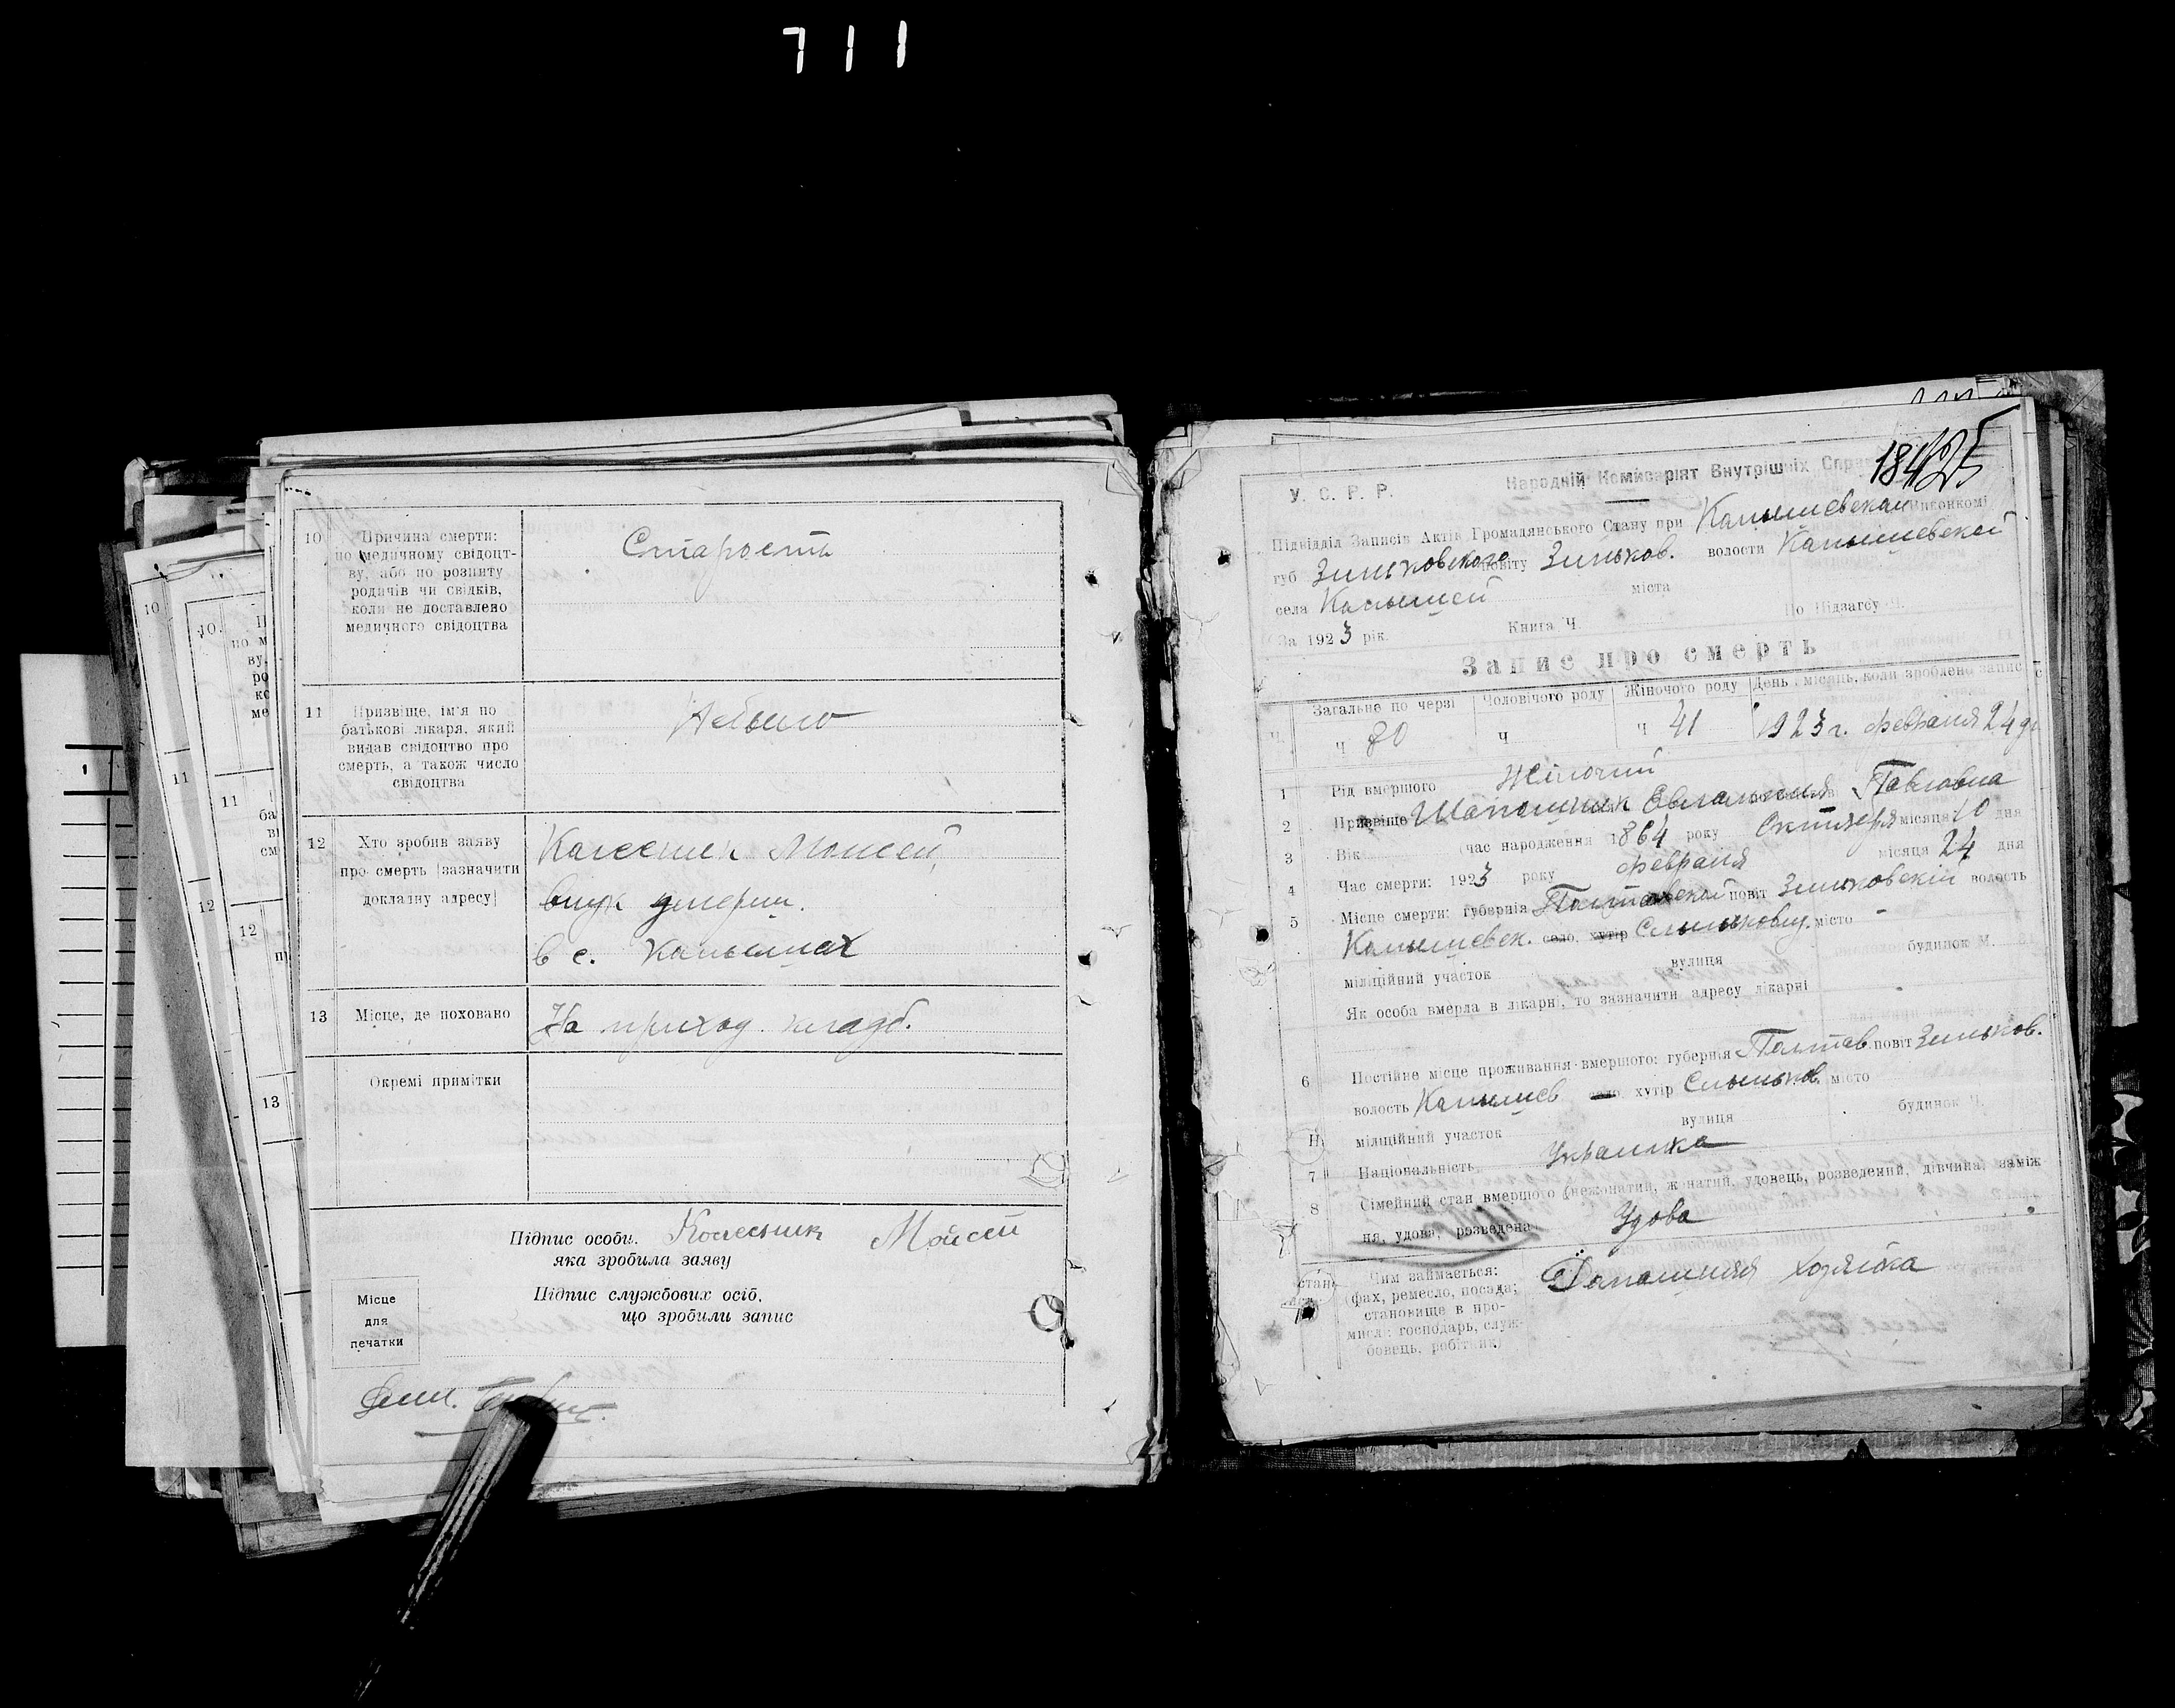 711
10
Причина смерти:
по медичному свідоцт-
ву, або по розпиту
родичів чи свідків,
коли не доставлено
медичного свідоцтва
Старость
11
Призвіще, ім'я по
батькові лікаря, який
видав свідоцтво про
смерть, а також число
свідоцтва
Небыло
12
Хто зробив заяву
про смерть (зазначити
докладну адресу)
Колесник Моисей
внук умерш.
в с. Камышах
13
Місце, де поховано
На приход. кладб.
Окремі примітки
Підпис особи, Колесник Мойсей
яка зробила заяву
Підпис службових осіб,
що зробили запис
Місце
для
печатки
У. С. Р. Р.
Народній Комисаріят Внутрішніх Справ
184
125
Підвідділ Записів Актів Громадянського Стану при Камышевском Виконкомі
губ Зиньковского повіту Зиньков. волости Камышевской
села Камышей міста
За 1923 рік. Книга Ч. По Підзагсу Ч.
Запис про смерть
Загальне по черзі Чоловічого роду Жіночого роду День і місяць, коли зроблено запис
ч 80 ч ч 41 1923 г. февраля 24
1 Рід вмершого Жіночий
2 Призвіще Шапошник Евгампия Павловна
3 Вік час народження 1864 року Октября місяця 10 дня
4 Час смерти: 1923 року февраля місяця 24 дня
5 Місце смерти: губернія Полтавской повіт Зиньковскій волость
Камышевск. село, хутір місто -
міліційний участок вулиця будинок М.
Як особа вмерла в лікарні, то зазначити адресу лікарні
6 Постійне місце проживання вмершого: губернія Полтав. повіт Зиньков.
волость Камышев село, хутір місто
міліційний участок вулиця будинок Ч.
7 Національність Украинка
8 Сімейний стан вмершого (нежонатий, жонатий, удовець, розведений, дівчина, заміж-
ня, удова, розведена Удова
Чим займається:
(фах, ремесло, посада;
становище в про-
мислі: господарь, служ-
бовець, робітник)
Домашняя хозяйка